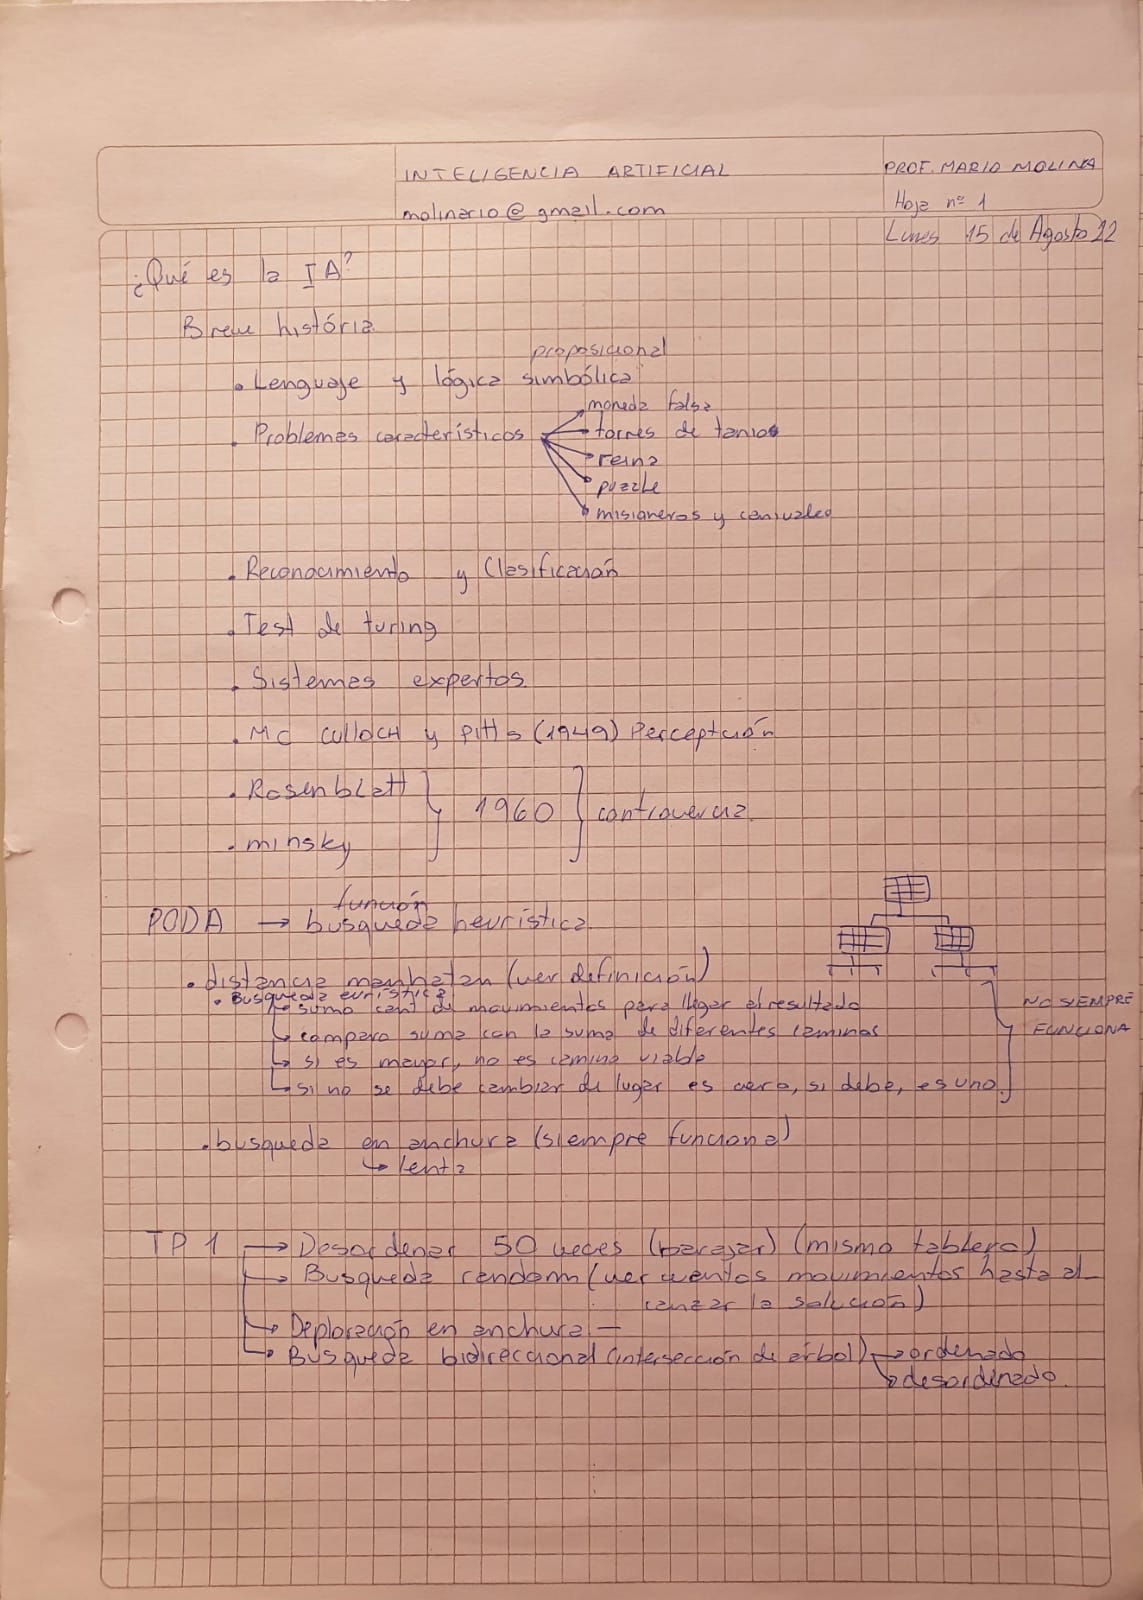 INTELIGENCIA ARTIFICIAL
PROF. MARIO MOLINA
molinario@gmail.com
Hoja nº 1
Lunes 15 de Agosto 22
¿Qué es la IA?
Breve história
proposicional
• Lenguaje y lógica simbólica
• Problemas característicos
moneda falsa
torres de tanios
reina
puzzle
misioneros y canivales
• Reconocimiento y Clasificación
• Test de turing
• Sistemas expertos
• Mc CULLOCH y PiTTs (1949) Perceptión
• Rosenblatt
1960
controvercia
• minsky
función
PODA → busqueda heurística
• distancia manhatan (ver definición)
• Busqueda eurística
↳ sumo cant de movimientos para llegar al resultado
↳ comparo suma con la suma de diferentes caminos
↳ si es mayor, no es camino viable
↳ si no se debe cambiar de lugar es cero, si debe, es uno
NO SIEMPRE
FUNCIONA
• busqueda en anchura (siempre funciona)
↳ lenta
TP 1 → Desordenar 50 veces (barajar) (mismo tablero)
→ Busqueda random (ver cuentos movimientos hasta al-
canzar la solución)
↳ Deploración en anchura —
↳ Busqueda bidireccional (intersección de arbol) → ordenado
↳ desordenado